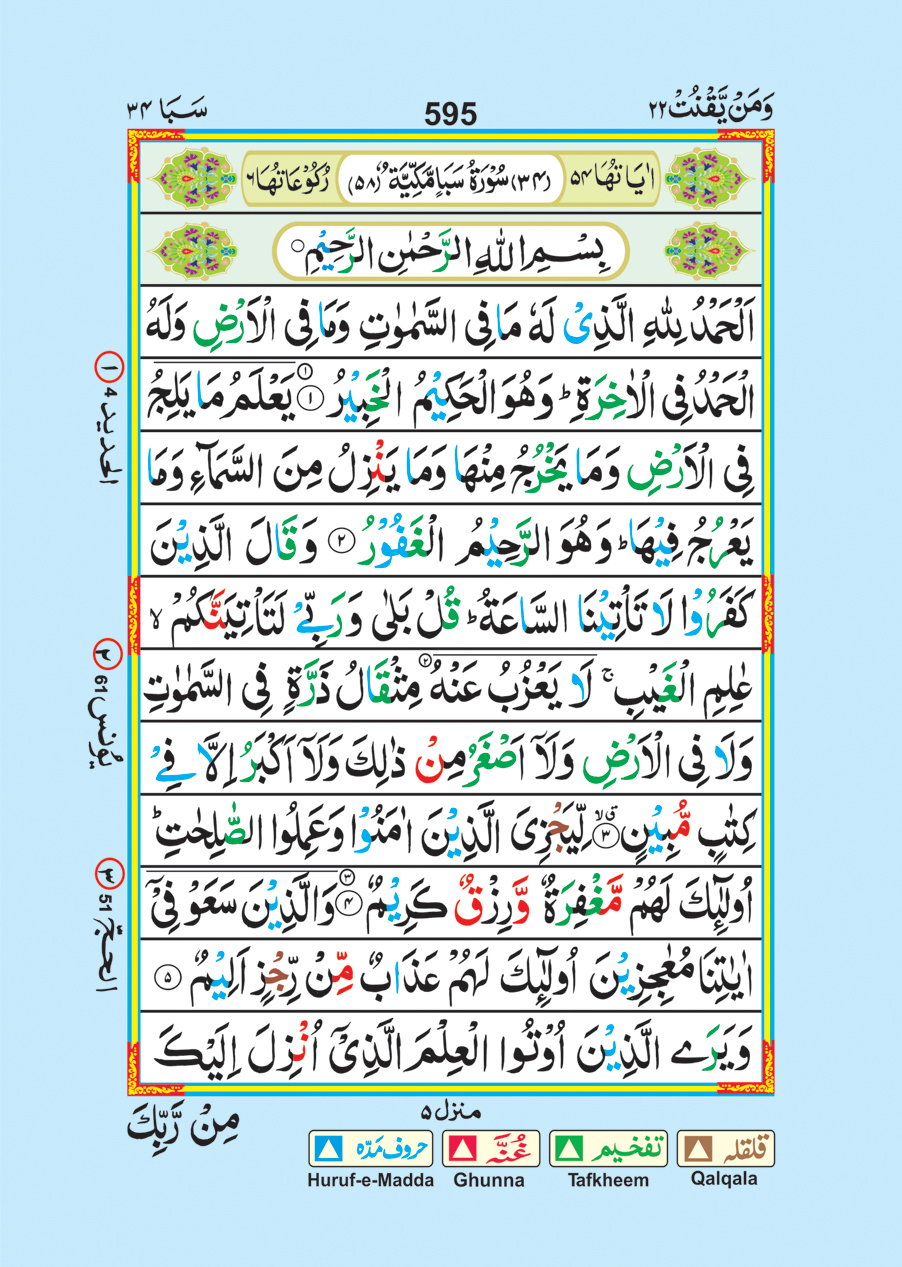 وَمَنْ يَّقْنُتْ ٢٢
595
سَبَا ٣٤
اٰيَاتُهَا ٥٤
(٣٤) سُوْرَةُ سَبَاٍ مَّكِّيَّةٌ (٥٨)
رُكُوْعَاتُهَا ٦
بِسْمِ اللّٰهِ الرَّحْمٰنِ الرَّحِيْمِ
اَلْحَمْدُ لِلّٰهِ الَّذِىْ لَهٗ مَا فِى السَّمٰوٰتِ وَمَا فِى الْاَرْضِ وَلَهُ
الْحَمْدُ فِى الْاٰخِرَةِ ؕ وَهُوَ الْحَكِيْمُ الْخَبِيْرُ ١ ١ يَعْلَمُ مَا يَلِجُ
فِى الْاَرْضِ وَمَا يَخْرُجُ مِنْهَا وَمَا يَنْزِلُ مِنَ السَّمَآءِ وَمَا
يَعْرُجُ فِيْهَا ؕ وَهُوَ الرَّحِيْمُ الْغَفُوْرُ ٢ وَقَالَ الَّذِيْنَ
كَفَرُوْا لَا تَاْتِيْنَا السَّاعَةُ ؕ قُلْ بَلٰى وَرَبِّىْ لَتَاْتِيَنَّكُمْ ۙ
عٰلِمِ الْغَيْبِ ۚ لَا يَعْزُبُ عَنْهُ ٢ مِثْقَالُ ذَرَّةٍ فِى السَّمٰوٰتِ
وَلَا فِى الْاَرْضِ وَلَاۤ اَصْغَرُ مِنْ ذٰلِكَ وَلَاۤ اَكْبَرُ اِلَّا فِىْ
كِتٰبٍ مُّبِيْنٍ ٣ ق لا لِّيَجْزِىَ الَّذِيْنَ اٰمَنُوْا وَعَمِلُوا الصّٰلِحٰتِ ؕ
اُولٰٓئِكَ لَهُمْ مَّغْفِرَةٌ وَّرِزْقٌ كَرِيْمٌ ٣ ٤ وَالَّذِيْنَ سَعَوْ فِىْۤ
اٰيٰتِنَا مُعٰجِزِيْنَ اُولٰٓئِكَ لَهُمْ عَذَابٌ مِّنْ رِّجْزٍ اَلِيْمٌ ٥
وَيَرَى الَّذِيْنَ اُوْتُوا الْعِلْمَ الَّذِىْۤ اُنْزِلَ اِلَيْكَ
١ الحديد 4
٢ يُوْنس 61
٣ الحجّ 51
منزل ٥
مِنْ رَّبِّكَ
حروف مَدّه
غُنَّه
تفخیم
قلقلہ
Huruf-e-Madda
Ghunna
Tafkheem
Qalqala